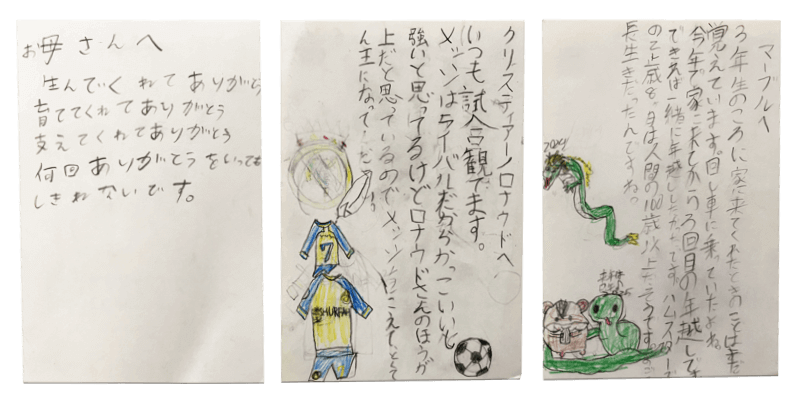 お母さんへ
生んでくれてありがとう
育ててくれてありがとう
支えてくれてありがとう
何回ありがとうをいっても
しきれないです。
クリスティアーノロナウドへ
いつも試合観てます。
メッシはライバルだからかっこいいし
強いと思ってるけどロナウドさんのほうが
上だと思っているのでメッシ
王になって
7
マーブルへ
3年生のころに家に来てくれたときのことはまだ
覚えています。同じ車に乗っていたよね。
今年で家に来てから3回目の年越しです
できれば一緒に年越ししたいです。ハムスター
の2歳8ヶ月は人間の100歳以上だそうです。
長生きだったんですね。
2024